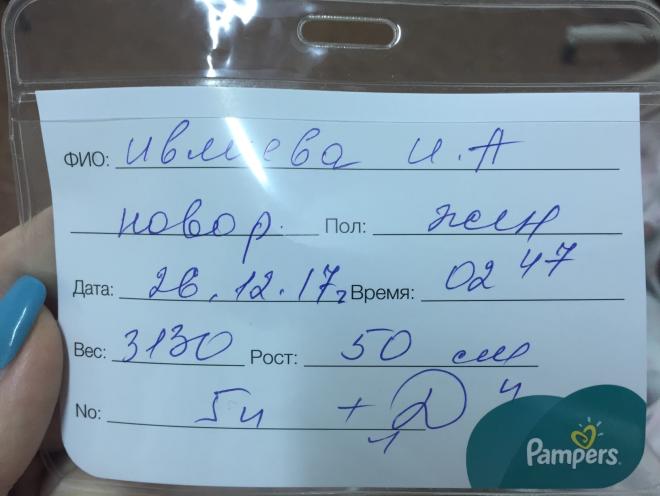 ФИО: Ивлиева И.А
новор. Пол: жен
Дата: 26.12.17г Время: 02 47
Вес: 3130 Рост: 50 см
No: 5ч + 1 Д ч
Pampers